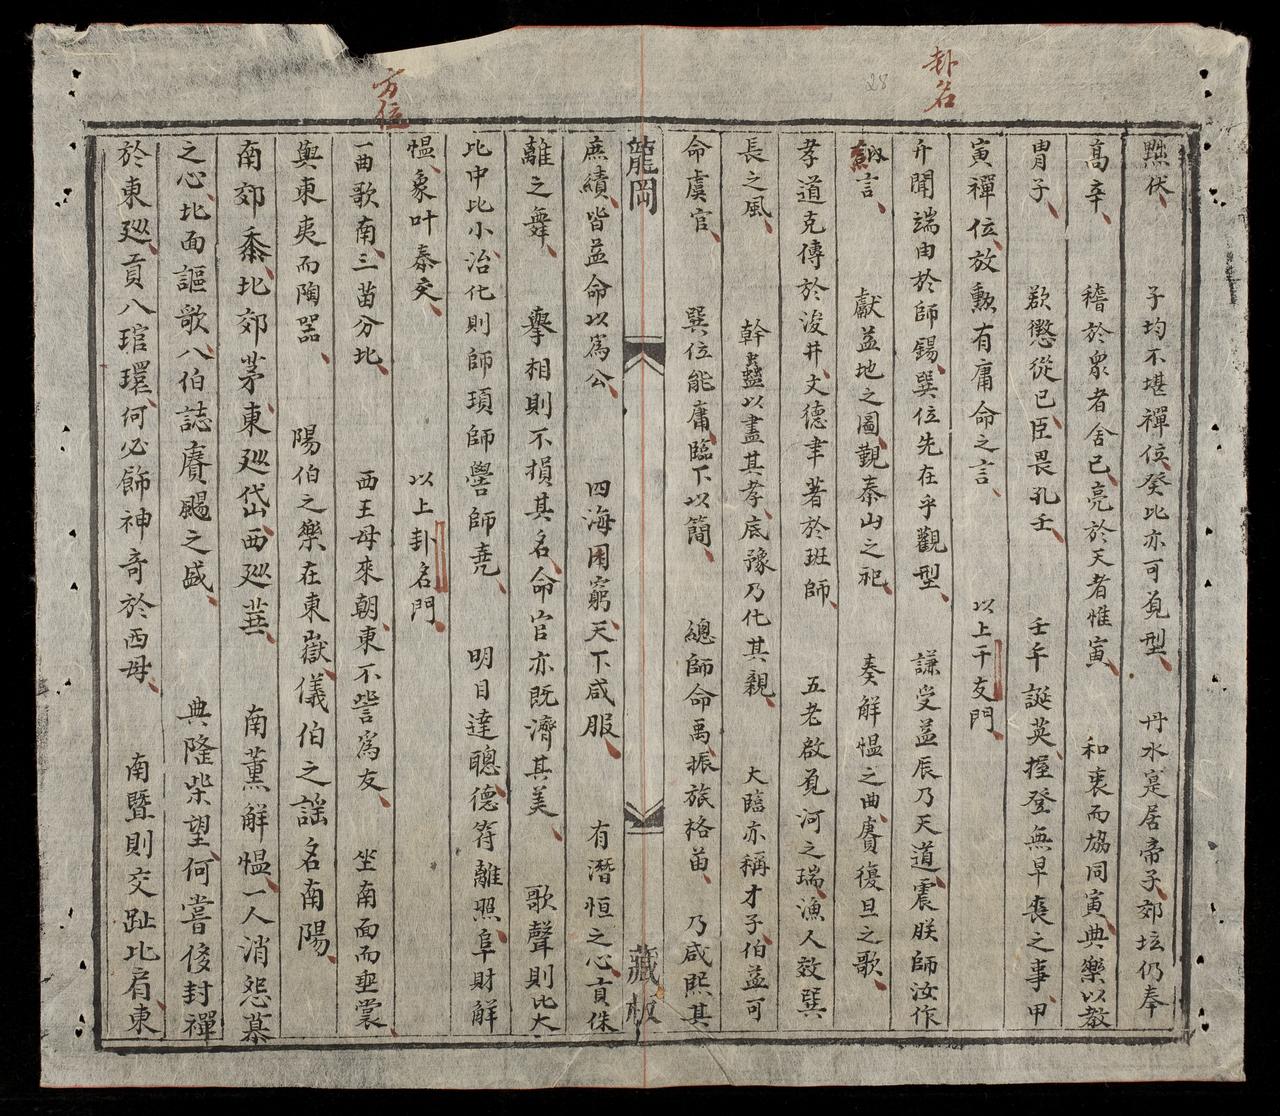 卦名
28
㸃伏 子均不堪禪位癸比亦可覓型 丹水寔居帝子郊坛仍奉
高辛 稽於衆者舍己亮於天者惟寅 和衷而協同寅典樂以教
胄子 欲懲從已臣畏孔壬 壬午誕英握登無早喪之事甲
寅禪位放勲有庸命之言 以上干友門
升聞端由於師錫巽位先在乎觀型 謙受益辰乃天道震朕師汝作
納言 獻益地之圖觀泰山之祀 奏解慍之曲賡復旦之歌
孝道克傳於浚井文德聿著於班師 五老啟覓河之瑞漁人效巽
長之風 幹蠱以盡其孝底豫乃化其親 大臨亦稱才子伯益可
命虞官 巽位能庸臨下以簡 總師命禹振旅格苗 乃咸熙其
龍岡
藏板
庶績皆益命以為公 四海困窮天下咸服 有潛恒之心貢侏
離之舞 舉相則不損其名命官亦既濟其美 歌聲則比大
比中比小治化則師頊師嚳師堯 明目達聰德符離照阜財解
愠象叶泰交 以上卦名門
方位
一曲歌南三苗分北 西王母來朝東不訾爲友 坐南面而垂裳
與東夷而陶器 陽伯之樂在東嶽儀伯之謡名南陽
南郊黍北郊茅東廵岱西廵華 南薰解愠一人消怨慕
之心北面謳歌八伯誌賡颺之盛 典隆柴望何嘗侈封禪
於東廵貢八琯環何必飾神奇於西母 南暨則交趾比肩東